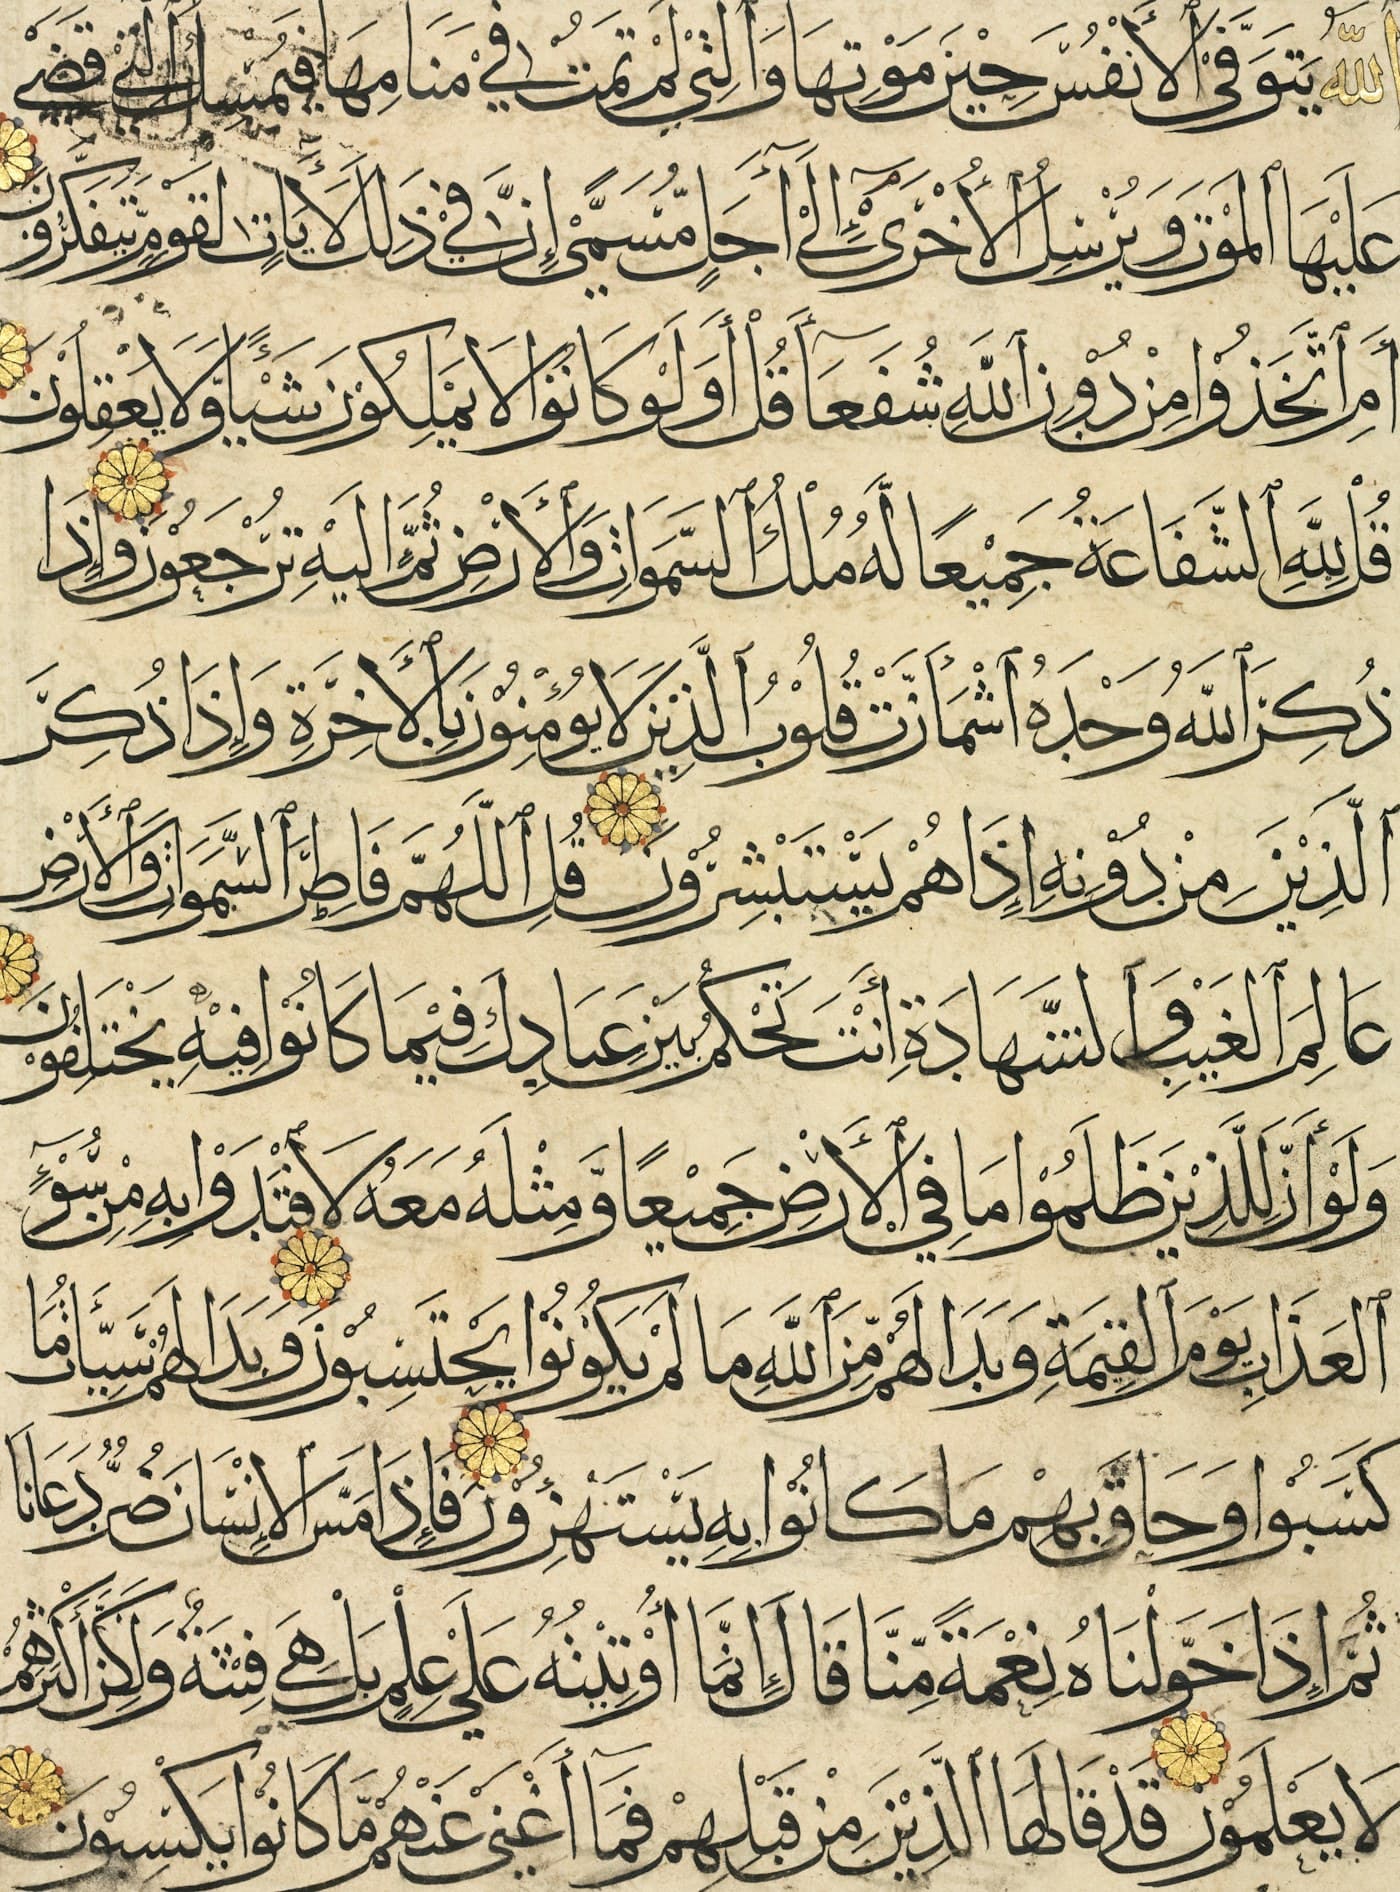 ٱللَّهُ يَتَوَفَّى ٱلْأَنْفُسَ حِيْنَ مَوْتِهَا وَٱلَّتِي لَمْ تَمُتْ فِي مَنَامِهَا فَيُمْسِكُ ٱلَّتِي قَضَى
عَلَيْهَا ٱلْمَوْتَ وَيُرْسِلُ ٱلْأُخْرَىٰٓ إِلَىٰٓ أَجَلٍ مُّسَمًّى إِنَّ فِي ذَٰلِكَ لَأَيَاتٍ لِقَوْمٍ يَّتَفَكَّرُونَ
أَمِ ٱتَّخَذُوْا مِنْ دُوْنِ ٱللَّهِ شُفَعَآءَ قُلْ أَوَلَوْ كَانُوْا لَا يَمْلِكُوْنَ شَيْئًا وَّلَا يَعْقِلُوْنَ
قُلْ لِلَّهِ ٱلشَّفَاعَةُ جَمِيْعًا لَّهُ مُلْكُ ٱلسَّمَوَاتِ وَٱلْأَرْضِ ثُمَّ إِلَيْهِ تُرْجَعُوْنَ وَإِذَا
ذُكِرَ ٱللَّهُ وَحْدَهُ ٱشْمَأَزَّتْ قُلُوْبُ ٱلَّذِيْنَ لَا يُؤْمِنُوْنَ بِٱلْأَخِرَةِ وَإِذَا ذُكِرَ
ٱلَّذِيْنَ مِنْ دُوْنِهِ إِذَا هُمْ يَسْتَبْشِرُوْنَ قُلِ ٱللَّهُمَّ فَاطِرَ ٱلسَّمَوَاتِ وَٱلْأَرْضِ
عَالِمَ ٱلْغَيْبِ وَٱلشَّهَادَةِ أَنْتَ تَحْكُمُ بَيْنَ عِبَادِكَ فِيْمَا كَانُوْا فِيْهِ يَخْتَلِفُوْنَ
وَلَوْ أَنَّ لِلَّذِيْنَ ظَلَمُوْا مَا فِي ٱلْأَرْضِ جَمِيْعًا وَّمِثْلَهُ مَعَهُ لَافْتَدَوْا بِهِ مِنْ سُوْٓءِ
ٱلْعَذَابِ يَوْمَ ٱلْقِيَمَةِ وَبَدَا لَهُمْ مِّنَ ٱللَّهِ مَا لَمْ يَكُوْنُوْا يَحْتَسِبُوْنَ وَبَدَا لَهُمْ سَيِّئَاتُ مَا
كَسَبُوْا وَحَاقَ بِهِمْ مَا كَانُوْا بِهِ يَسْتَهْزِءُوْنَ فَإِذَا مَسَّ الْإِنْسَانَ ضُرٌّ دَعَانَا
ثُمَّ إِذَا خَوَّلْنَاهُ نِعْمَةً مِّنَّا قَالَ إِنَّمَا أُوْتِيْتُهُ عَلَى عِلْمٍ بَلْ هِيَ فِتْنَةٌ وَلَكِنَّ أَكْثَرَهُمْ
لَا يَعْلَمُوْنَ قَدْ قَالَهَا ٱلَّذِيْنَ مِنْ قَبْلِهِمْ فَمَآ أَغْنَى عَنْهُمْ مَّا كَانُوْا يَكْسِبُوْنَ